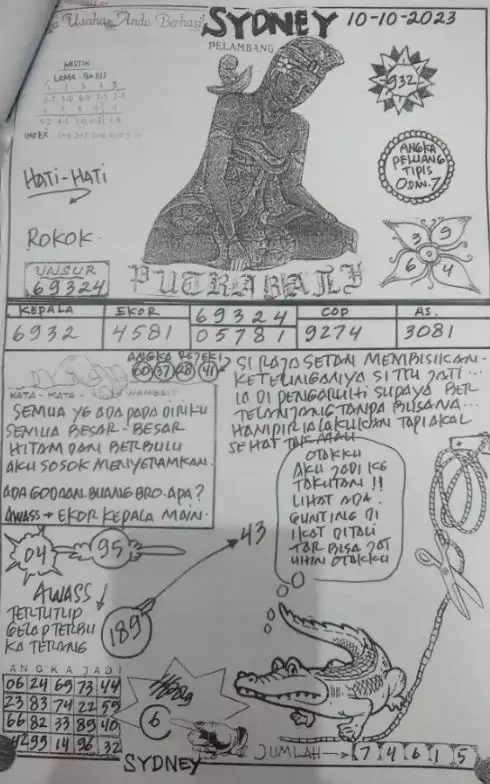 Usaha Anda Berhasil
SYDNEY 10-10-2023
PELAMBANG
MISTIK
LAMA - BARU
INDEX
932
HATI-HATI
ANGKA
PELUANG
TIPIS
0 DAN 7
ROKOK.
3 9
6 4
UNSUR
69324
PUTRI BALI
KEPALA EKOR 69324 COP AS.
6932 4581 05781 9274 3081
ANGKA REJEKI
60 37 28 41
KATA - KATA WANGSIT
SEMUA YG ADA PADA DIRIKU
SEMUA BESAR - BESAR
HITAM DAN BERBULU
AKU SOSOK MENYERAMKAN.
ADA GODAAN BUANG BRO. APA?
AWASS → EKOR KEPALA MAIN.
SI RAJA SETAN MEMBISIKAN
KETELINGANYA SI TU JATI...
IA DI PENGARUHI SUPAYA BER
TELANJANG TANPA BUSANA...
HAMPIR IA LAKUKAN TAPI AKAL
SEHAT TAK MAU
OTAKKU
AKU JADI KE
TAKUTAN !!
LIHAT ADA.
GUNTING DI
IKAT DI TALI
OTAKKU
04 95
43
AWASS
TERTUTUP
GELAP TERBU
KA TERANG
189
ANGKA JADI
06 24 69 73 44
23 83 74 22 59
66 82 33 89 40
42 99 14 96 32
6
SYDNEY
JUMLAH → 7 4 6 1 5